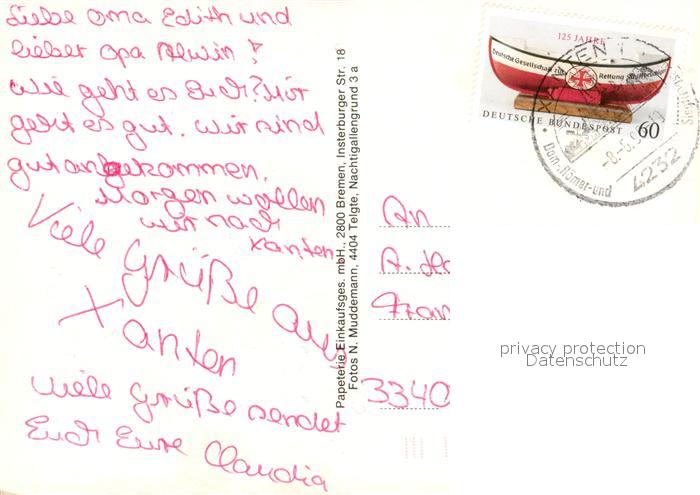 Liebe Oma Edith und
lieber Opa Alwin!
Wie geht es Euch? Mir
geht es gut. Wir sind
gut angekommen.
Morgen wollen
wir nach
Xanten.
Viele Grüße aus
Xanten
Viele Grüße sendet
Euch Eure Claudia
Papeterie Einkaufsges. mbH., 2800 Bremen, Insterburger Str. 18
Fotos N. Muddemann, 4404 Telgte, Nachtigallengrund 3 a
125 JAHRE
Deutsche Gesellschaft zur Rettung Schiffbrüchiger
DEUTSCHE BUNDESPOST 60
XANTEN 1
-8.-6.9
4232
Dom-, Römer- und
An
A. He
Fran
3340
privacy protection
Datenschutz